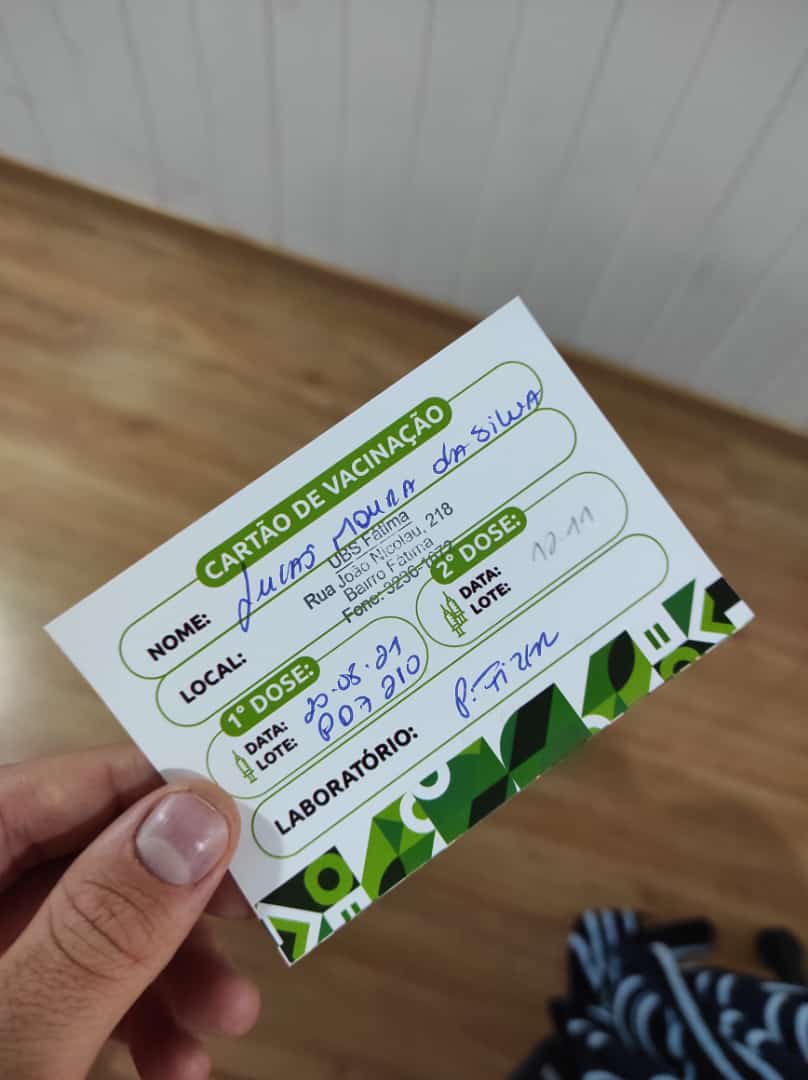 CARTÃO DE VACINAÇÃO
NOME: Lucas Moura da Silva
LOCAL: UBS Fátima
Rua João Nicolau, 218
Bairro Fátima
Fone: 3236-1073
1° DOSE:
DATA: 20.08.21
LOTE: PD7 210
2° DOSE:
DATA: 12-11
LOTE:
LABORATÓRIO: P.Fizer